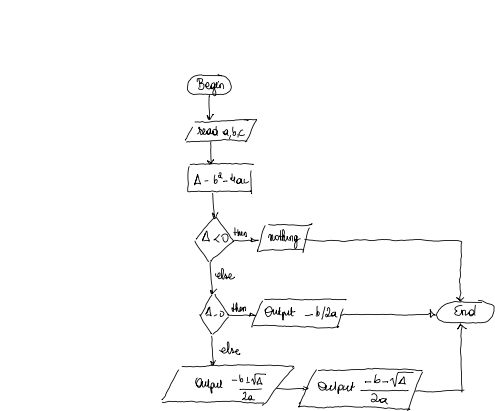 Begin
read a,b,c
Δ = b² - 4ac
Δ < 0
then
nothing
else
Δ = 0
then
Output -b/2a
End
else
Output -b±√Δ/2a
Output -b-√Δ/2a